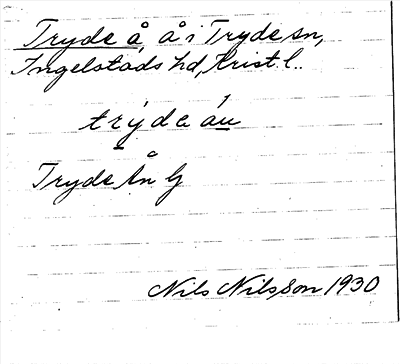 Tryde å, å i Tryde sn,
Ingelstads hd, Krist. l..
trýda áu
Tryde Ån
Nils Nilsson 1930